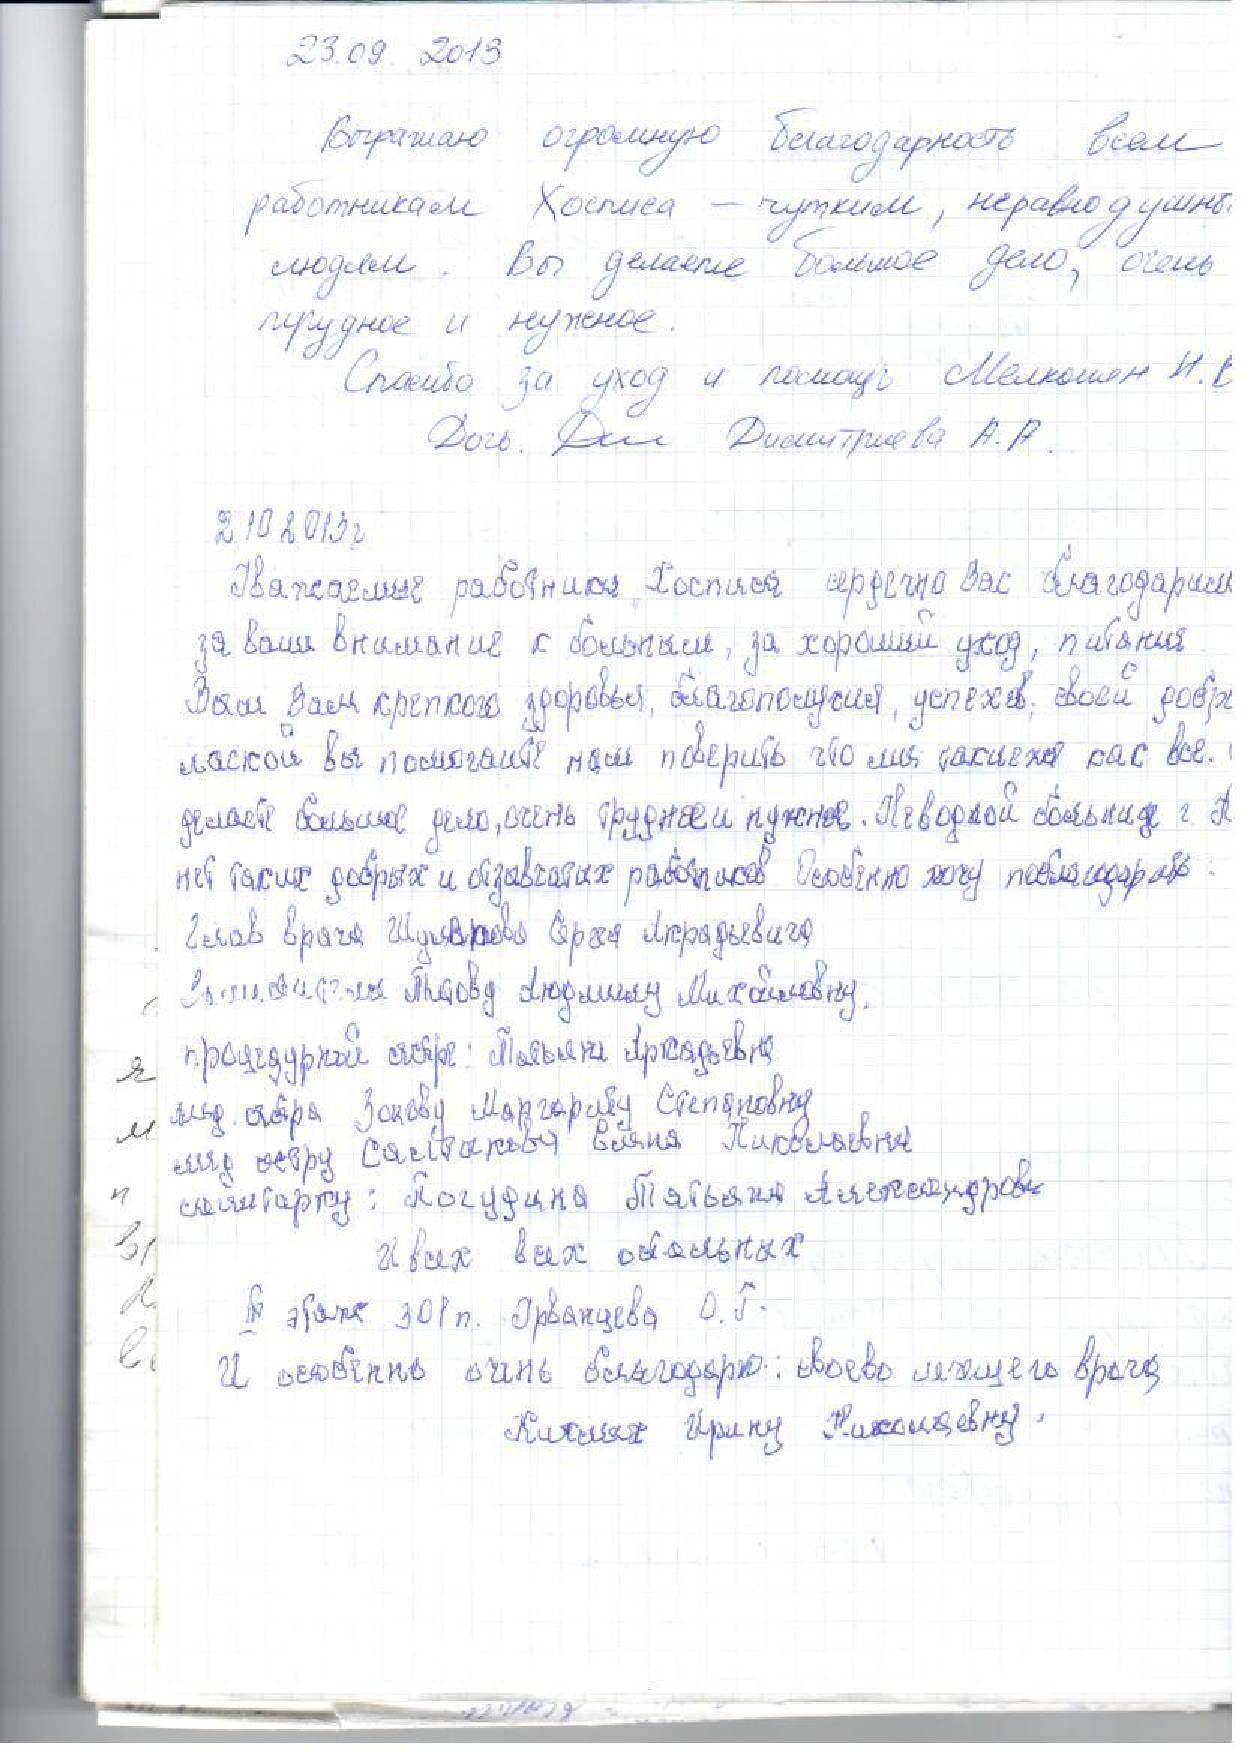 23.09. 2013
Выражаю огромную благодарность всем
работникам Хосписа – чутким, неравнодушны
людям. Вы делаете большое дело, очень
трудное и нужное.
Спасибо за уход и помощь Мелкошян И. В
Дочь. Димитриева А. А.
2 10 2013г
Уважаемые работники Хосписа сердечно Вас благодарим
за ваши внимание к больным, за хороший уход, питания.
Вам Вам крепкого здоровья, благополучия, успехов, своей
лаской вы помогаите нам поверить что мы такиеже как все.
делаете большое дело, очень трудное и нужное. Неводной больнице г.
нет таких добрых и отзавчатых работников Особенно хочу поблагодарить:
Глав врача
Людмилу Михайловну.
процедурной сестре: Татьяни Аркадьевна
мед. сестра Маргариту Степановну
мед сестру Николаевна
санитарку: Погудина Татьяна Александров
И всех всех остальных
III этаж 301 п. Урванцева О. Г.
И особенно очень благодарю: своево лечащего врача
Ирину Николаевну.